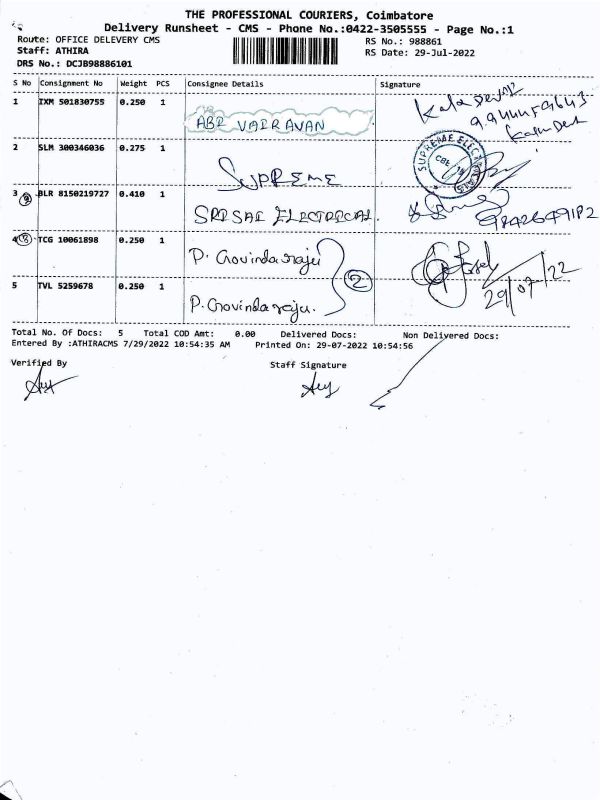 THE PROFESSIONAL COURIERS, Coimbatore
Delivery Runsheet - CMS - Phone No.:0422-3505555 - Page No.:1
Route: OFFICE DELEVERY CMS
RS No.: 988861
Staff: ATHIRA
RS Date: 29-Jul-2022
DRS No.: DCJB98886101
S No Consignment No Weight PCS Consignee Details Signature
1 IXM 501830755 0.250 1 ABI VAIRAVAN
2 SLM 300346036 0.275 1 SUPREME
SUPREME ELECTRICALS CBE
3 BLR 8150219727 0.410 1 SRI SAI ELECTRICAL.
9842649182
4 TCG 10061898 0.250 1 P. Govindaraju
5 TVL 5259678 0.250 1 P. Govindaraju.
2
29/07/22
Total No. Of Docs: 5 Total COD Amt: 0.00 Delivered Docs: Non Delivered Docs:
Entered By :ATHIRACMS 7/29/2022 10:54:35 AM Printed On: 29-07-2022 10:54:56
Verified By
Staff Signature